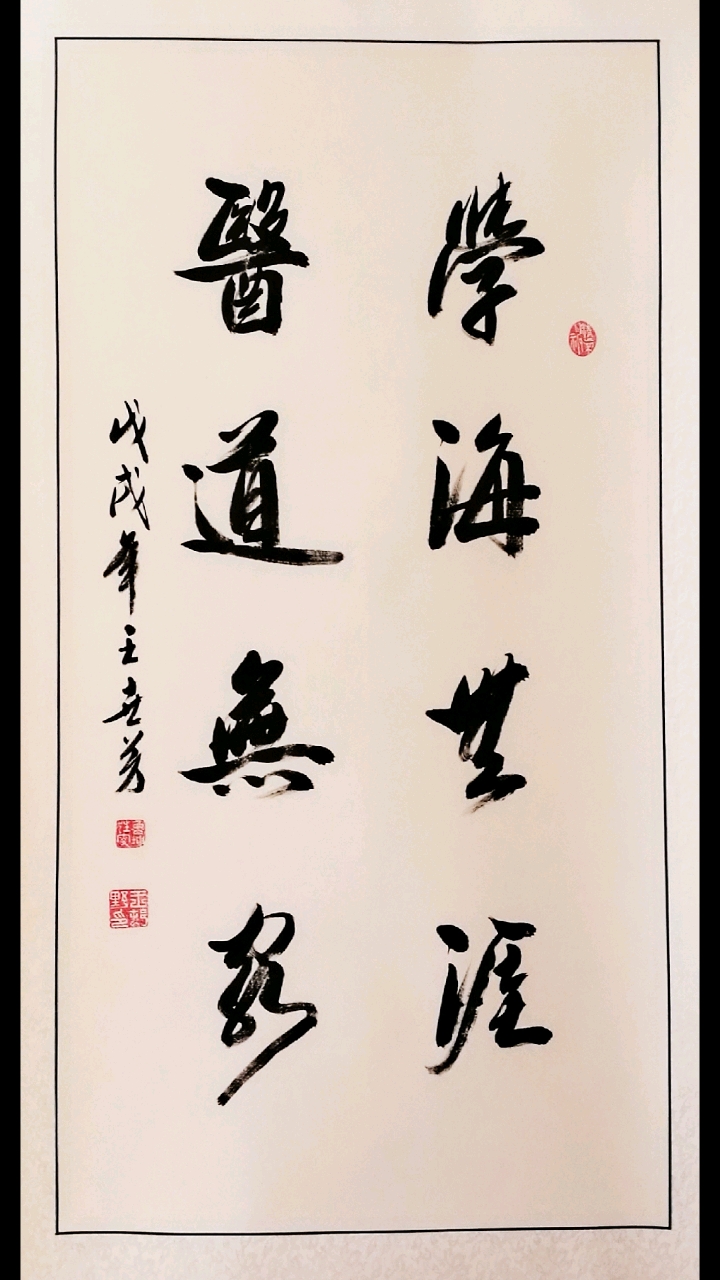 學海無涯
醫道無窮
戊戌年王